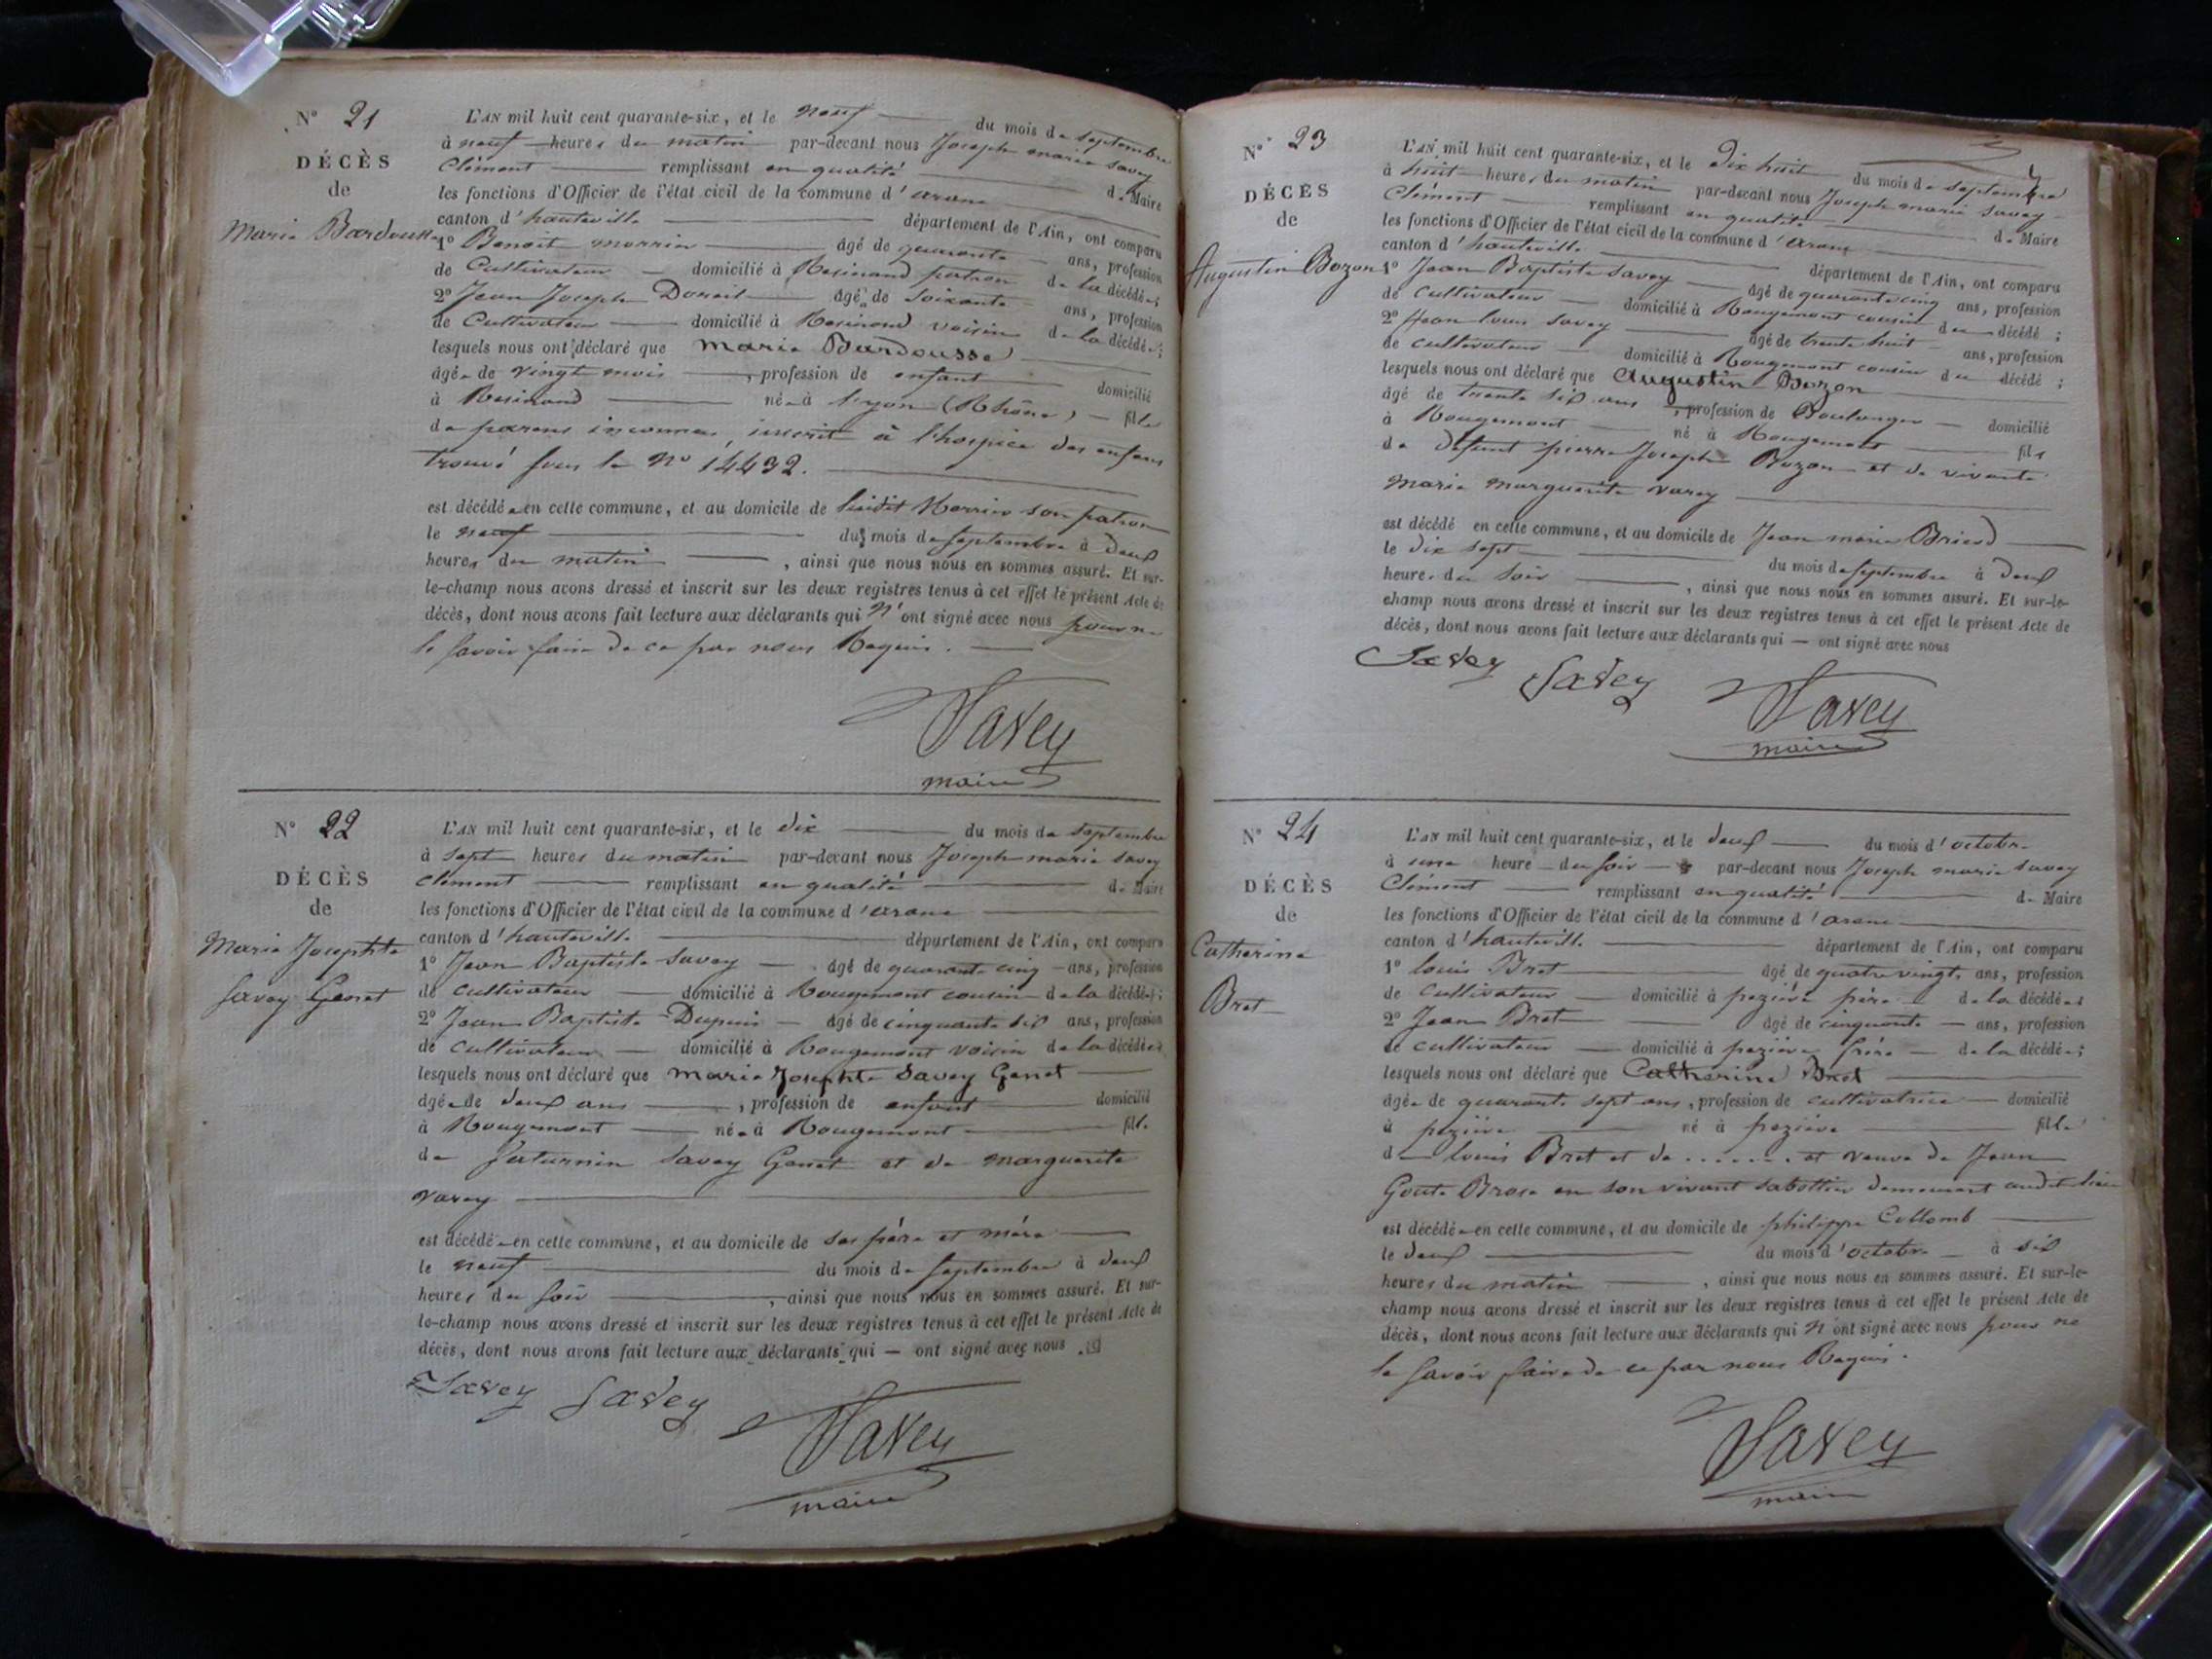 N° 21
DÉCÈS
de
Marie Bardousse
L'AN mil huit cent quarante-six, et le neuf du mois de septembre
à neuf heures du matin par-devant nous Joseph marie Savey
Clément remplissant en qualité de Maire
les fonctions d'Officier de l'état civil de la commune d'arane
canton d'hauteville département de l'Ain, ont comparu
1° Benoit morrier âgé de quarante ans, profession
de Cultivateur domicilié à Resinand patron de la décédée;
2° Jean Joseph âgé de soixante ans, profession
de Cultivateur domicilié à Resinand voisin de la décédée;
lesquels nous ont déclaré que marie Bardousse
âgée de vingt mois, profession de enfant domicilié
à Resinand née à Lyon (Rhône) fille
de parens inconnus, inscrit à l'hospice des enfans
trouvé sous le N° 14432.
est décédée en cette commune, et au domicile de Morrier son patron
le neuf du mois de septembre à deux
heures du matin, ainsi que nous nous en sommes assuré. Et sur-
le-champ nous avons dressé et inscrit sur les deux registres tenus à cet effet le présent Acte de
décès, dont nous avons fait lecture aux déclarants qui n'ont signé avec nous pour ne
le savoir faire de ce par nous Requis.
Savey
maire
N° 22
DÉCÈS
de
Marie Josephte
Savey Genet
L'AN mil huit cent quarante-six, et le dix du mois de septembre
à sept heures du matin par-devant nous Joseph marie Savey
Clément remplissant en qualité de Maire
les fonctions d'Officier de l'état civil de la commune d'arane
canton d'hauteville département de l'Ain, ont comparu
1° Jean Baptiste Savey âgé de quarante cinq ans, profession
de cultivateur domicilié à Rougemont cousin de la décédée;
2° Jean Baptiste Dupuis âgé de cinquante six ans, profession
de cultivateur domicilié à Rougemont voisin de la décédée
lesquels nous ont déclaré que marie Josephte Savey Genet
âgée de deux ans, profession de enfant domicilié
à Rougemont née à Rougemont fille
de Saturnin Savey Genet et de marguerite
varey
est décédée en cette commune, et au domicile de ses père et mère
le neuf du mois de septembre à deux
heures du soir, ainsi que nous nous en sommes assuré. Et sur-
le-champ nous avons dressé et inscrit sur les deux registres tenus à cet effet le présent Acte de
décès, dont nous avons fait lecture aux déclarants qui — ont signé avec nous.
Savey Savey
Savey
maire
N° 23
DÉCÈS
de
Augustin Bozon
L'AN mil huit cent quarante-six, et le Dix huit du mois de septembre
à huit heures du matin par-devant nous Joseph marie Savey
Clément remplissant en qualité de Maire
les fonctions d'Officier de l'état civil de la commune d'arane
canton d'hauteville département de l'Ain, ont comparu
1° Jean Baptiste Savey âgé de quarante cinq ans, profession
de cultivateur domicilié à Rougemont cousin du décédé;
2° Jean Louis Savey âgé de trente huit ans, profession
de cultivateur domicilié à Rougemont cousin du décédé;
lesquels nous ont déclaré que Augustin Bozon
âgé de trente six ans, profession de Boulanger domicilié
à Rougemont né à Rougemont fils
de defunt pierre Joseph Bozon et de vivante
Marie marguerite varey
est décédé en cette commune, et au domicile de Jean marie Briand
le dix sept du mois de septembre à deux
heures du soir, ainsi que nous nous en sommes assuré. Et sur-le-
champ nous avons dressé et inscrit sur les deux registres tenus à cet effet le présent Acte de
décès, dont nous avons fait lecture aux déclarants qui — ont signé avec nous
Savey Savey Savey
maire
N° 24
DÉCÈS
de
Catherine
Bret
L'AN mil huit cent quarante-six, et le deux du mois d'octobre
à une heure du soir par-devant nous Joseph marie Savey
Clément remplissant en qualité de Maire
les fonctions d'Officier de l'état civil de la commune d'arane
canton d'hauteville département de l'Ain, ont comparu
1° Louis Bret âgé de quatre vingts ans, profession
de cultivateur domicilié à pezière père de la décédée
2° Jean Bret âgé de cinquante ans, profession
de cultivateur domicilié à pezière frère de la décédée;
lesquels nous ont déclaré que Catherine Bret
âgée de quarante sept ans, profession de cultivatrice domicilié
à pezière né à pezière fille
de Louis Bret et de ....... et veuve de Jean
Goute Brose en son vivant sabottier demeurant audit lieu
est décédée en cette commune, et au domicile de philippe Collomb
le deux du mois d'octobre à six
heures du matin, ainsi que nous nous en sommes assuré. Et sur-le-
champ nous avons dressé et inscrit sur les deux registres tenus à cet effet le présent Acte de
décès, dont nous avons fait lecture aux déclarants qui n'ont signé avec nous pour ne
le savoir faire de ce par nous Requis.
Savey
maire